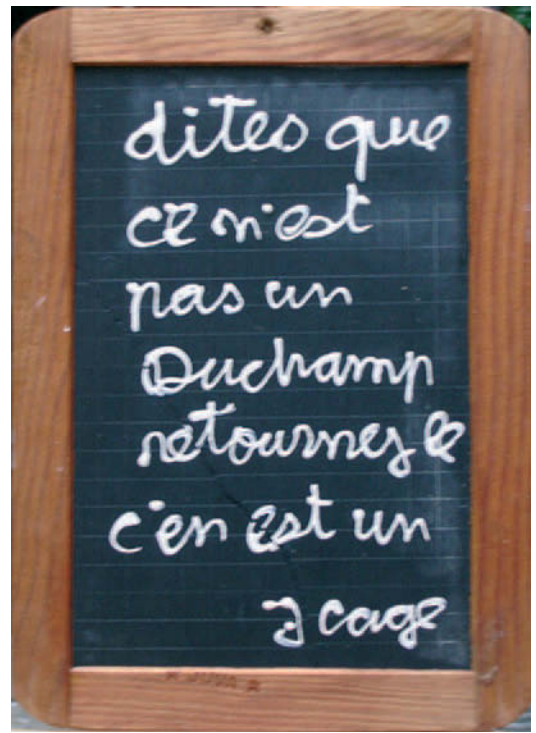 dites que
ce n'est
pas un
Duchamp
retournez le
c'en est un
J cage